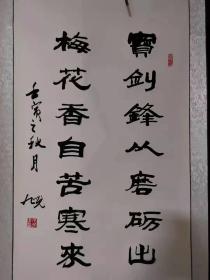 寶剑鋒从磨砺出
梅花香自苦寒來
壬寅之秋月